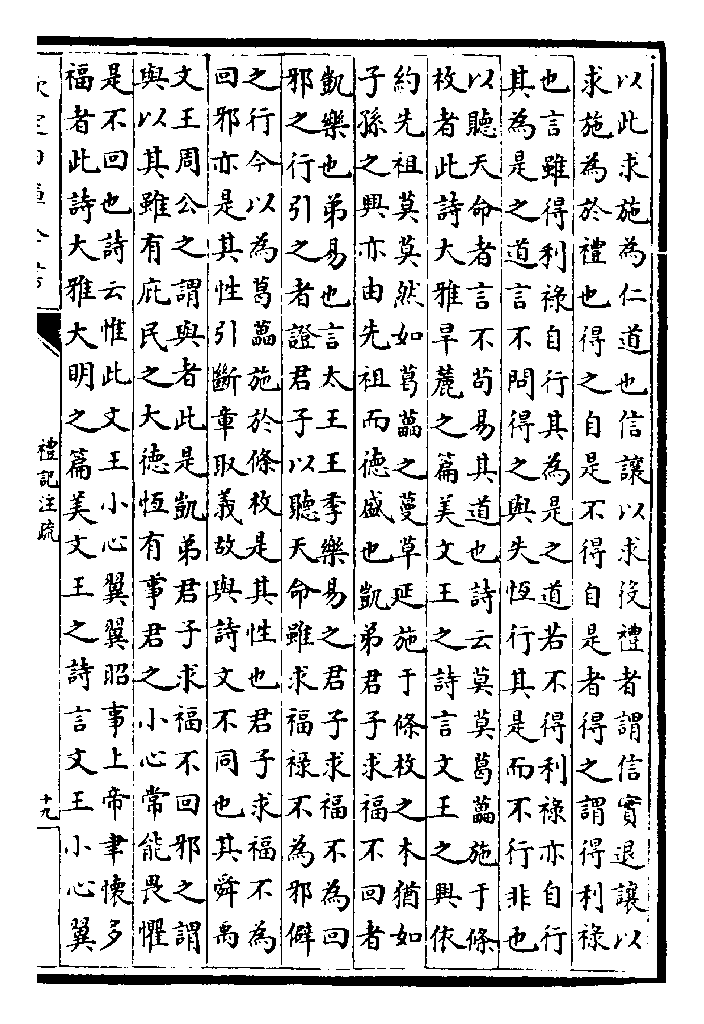 以此求施為仁道也信讓以求役禮者謂信實退讓以
求施為於禮也得之自是不得自是者得之謂得利祿
也言雖得利祿自行其為是之道若不得利祿亦自行
其為是之道言不問得之與失恆行其是而不行非也
以聽天命者言不苟易其道也詩云莫莫葛藟施于條
枚者此詩大雅旱麓之篇美文王之詩言文王之興依
約先祖莫莫然如葛藟之蔓草延施于條枚之木猶如
子孫之興亦由先祖而德盛也凱弟君子求福不回者
凱樂也弟易也言太王王季樂易之君子求福不為回
邪之行引之者證君子以聽天命雖求福祿不為邪僻
之行今以為葛藟施於條枚是其性也君子求福不為
回邪亦是其性引斷章取義故與詩文不同也其舜禹
文王周公之謂與者此是凱弟君子求福不回邪之謂
與以其雖有庇民之大德恆有事君之小心常能畏懼
是不回也詩云惟此文王小心翼翼昭事上帝聿懷多
福者此詩大雅大明之篇美文王之詩言文王小心翼
禮記注疏
十九